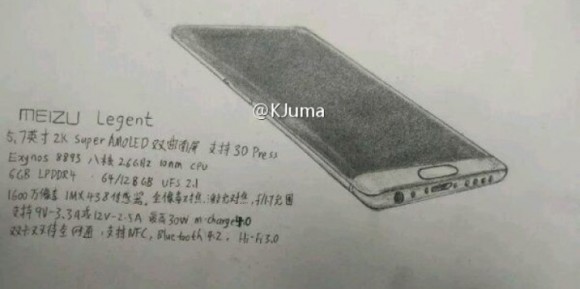 @KJuma
MEIZU Legent
5.7英寸 2K Super AMOLED 双曲面屏 支持 3D Press
Exynos 8895 八核 2.6GHz 10nm CPU
6GB LPDDR4 64/128GB UFS 2.1
1600万像素 IMX 438传感器。全像素对焦,激光对焦,F/1.7光圈
支持9V-3.3A或12V-2.5A 最高30W m-charge4.0
双卡双待全网通,支持NFC,Bluetooth 4.2,Hi-Fi 3.0